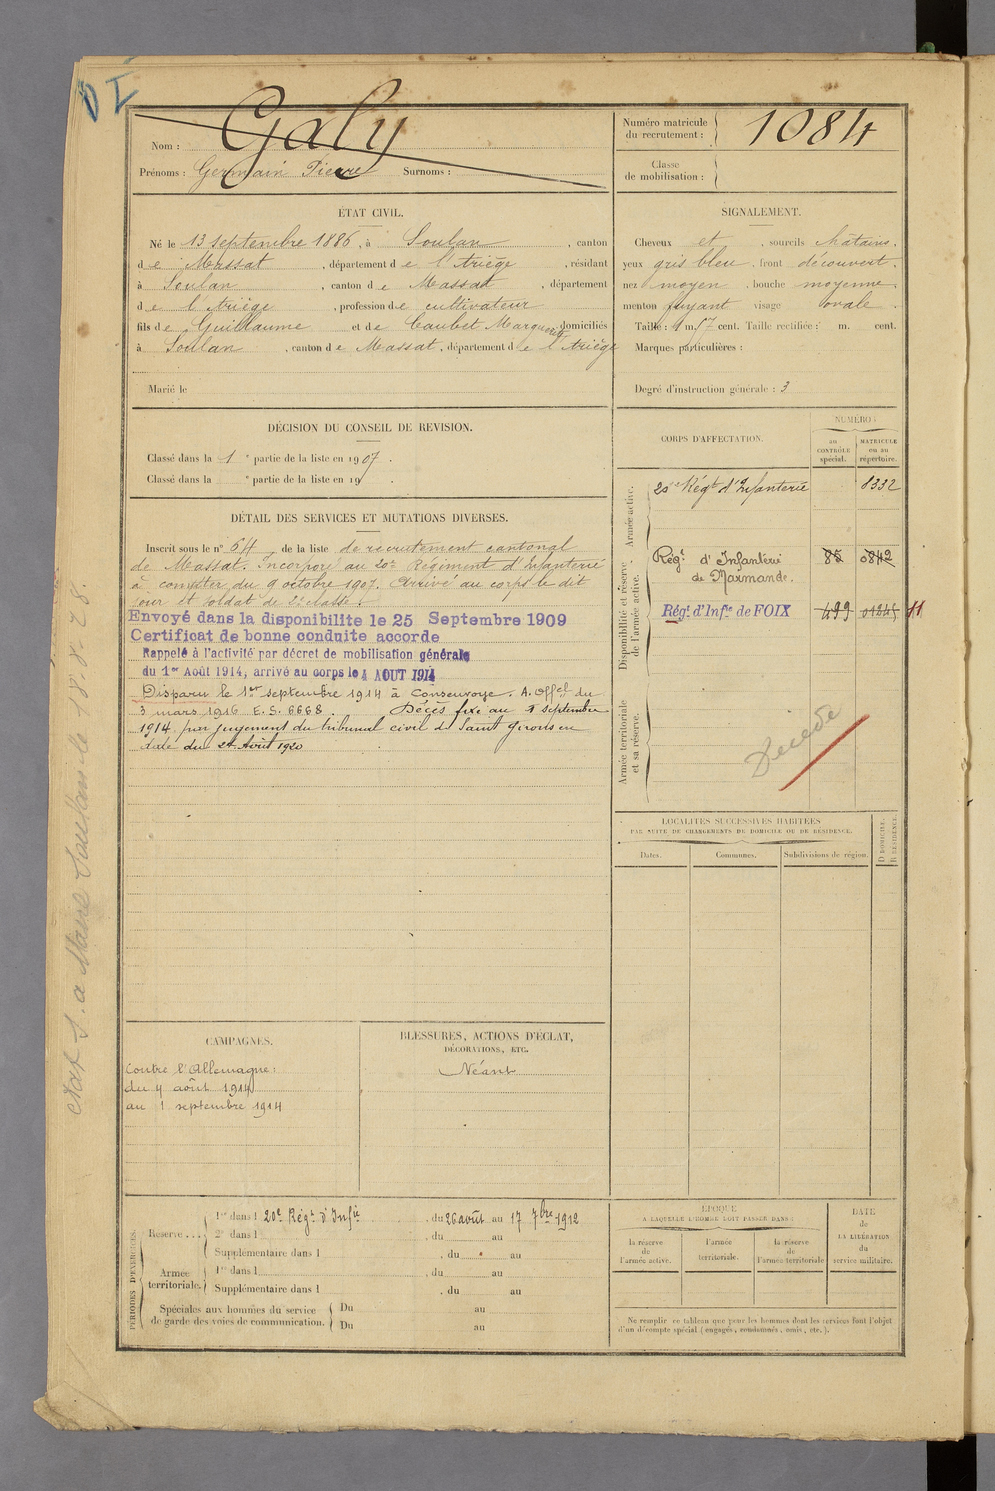 D I
Nom : Galy
Prénoms : Germain Pierre Surnoms :
Numéro matricule du recrutement : 1084
Classe de mobilisation :
ÉTAT CIVIL.
Né le 13 septembre 1886, à Soulan, canton
de Massat, département de l'Ariège, résidant
à Soulan, canton de Massat, département
de l'Ariège, profession de cultivateur
fils de Guillaume et de Caubet Marguerite domiciliés
à Soulan, canton de Massat, département de l'Ariège
Marié le
SIGNALEMENT.
Cheveux et, sourcils châtains.
yeux gris bleu, front découvert,
nez moyen, bouche moyenne,
menton fuyant visage ovale.
Taille : 1 m. 57 cent. Taille rectifiée : m. cent.
Marques particulières :
Degré d'instruction générale : 3
DÉCISION DU CONSEIL DE REVISION.
Classé dans la 1e partie de la liste en 1907.
Classé dans la e partie de la liste en 19 .
DÉTAIL DES SERVICES ET MUTATIONS DIVERSES.
Inscrit sous le n° 64 de la liste de recrutement cantonal
de Massat. Incorporé au 20e Régiment d'Infanterie
à compter du 9 octobre 1907. Arrivé au corps le dit
jour et soldat de 2e classe.
Envoyé dans la disponibilite le 25 Septembre 1909
Certificat de bonne conduite accorde
Rappelé à l'activité par décret de mobilisation générale
du 1er Août 1914, arrivé au corps le 4 AOUT 1914
Disparu le 1er septembre 1914 à Consenvoye. A. Offel du
3 mars 1916 E. S. 6668. Décès fixé au 1 septembre
1914 par jugement du tribunal civil de Saint Girons en
date du 24 Août 1920
CORPS D'AFFECTATION.
NUMÉRO :
au CONTRÔLE spécial.
MATRICULE ou au répertoire.
Armée active.
20e Régt d'Infanterie 8332
Disponibilité et réserve de l'armée active.
Régt d'Infanterie de Marmande. 85 0842
Régt d'Infie de FOIX 499 01245 11
Armée territoriale et sa réserve.
Décédé
LOCALITÉS SUCCESSIVES HABITÉES
PAR SUITE DE CHANGEMENTS DE DOMICILE OU DE RÉSIDENCE.
Dates. Communes. Subdivisions de région. D DOMICILE. R RÉSIDENCE.
CAMPAGNES.
Contre l'Allemagne :
du 4 août 1914
au 1 septembre 1914
BLESSURES, ACTIONS D'ÉCLAT,
DÉCORATIONS, ETC.
Néant
PÉRIODES D'EXERCICES.
Réserve . . .
1re dans l 20e Régt d'Infie, du 26 août au 17 7bre 1912
2e dans l , du au
Supplémentaire dans l , du au
Armée territoriale.
1re dans l , du au
Supplémentaire dans l , du au
Spéciales aux hommes du service de garde des voies de communication.
Du au
Du au
ÉPOQUE
A LAQUELLE L'HOMME DOIT PASSER DANS :
la réserve de l'armée active.
l'armée territoriale.
la réserve de l'armée territoriale
DATE de LA LIBÉRATION du service militaire.
Ne remplir ce tableau que pour les hommes dont les services font l'objet
d'un décompte spécial (engagés, condamnés, omis, etc.).